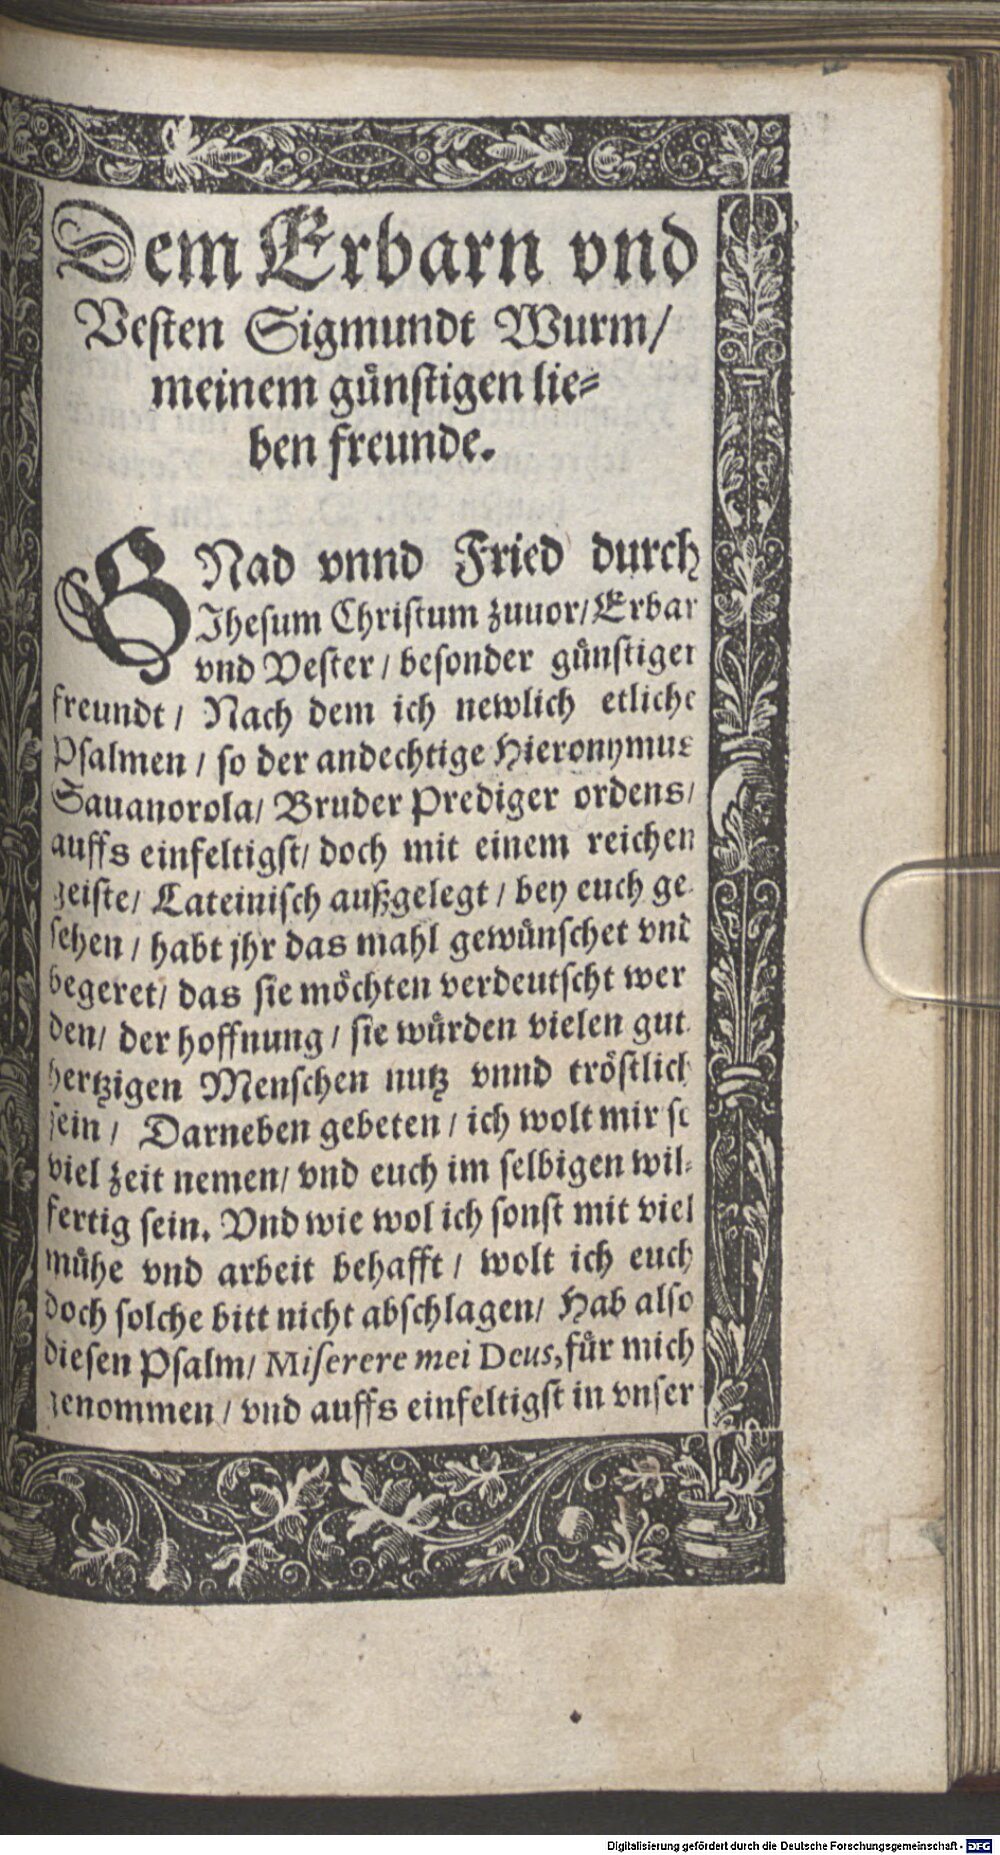 Dem Erbarn vnd
Vesten Sigmundt Wurm/
meinem günstigen lie⸗
ben freunde.
GNad vnnd Fried durch
Jhesum Christum zuuor/ Erbar
vnd Vester/ besonder günstiger
freundt/ Nach dem ich newlich etliche
Psalmen/ so der andechtige Hieronymus
Sauanorola/ Bruder Prediger ordens/
auffs einfeltigst/ doch mit einem reichen
geiste/ Lateinisch außgelegt/ bey euch ge
sehen/ habt jhr das mahl gewünschet vnd
begeret/ das sie möchten verdeutscht wer
den/ der hoffnung/ sie würden vielen gut
hertzigen Menschen nutz vnnd tröstlich
sein/ Darneben gebeten/ ich wolt mir so
viel zeit nemen/ vnd euch im selbigen wil⸗
fertig sein. Vnd wie wol ich sonst mit viel
mühe vnd arbeit behafft/ wolt ich euch
doch solche bitt nicht abschlagen/ Hab also
diesen Psalm/ Miserere mei Deus, für mich
genommen/ vnd auffs einfeltigst in vnser
Digitalisierung gefördert durch die Deutsche Forschungsgemeinschaft - DFG